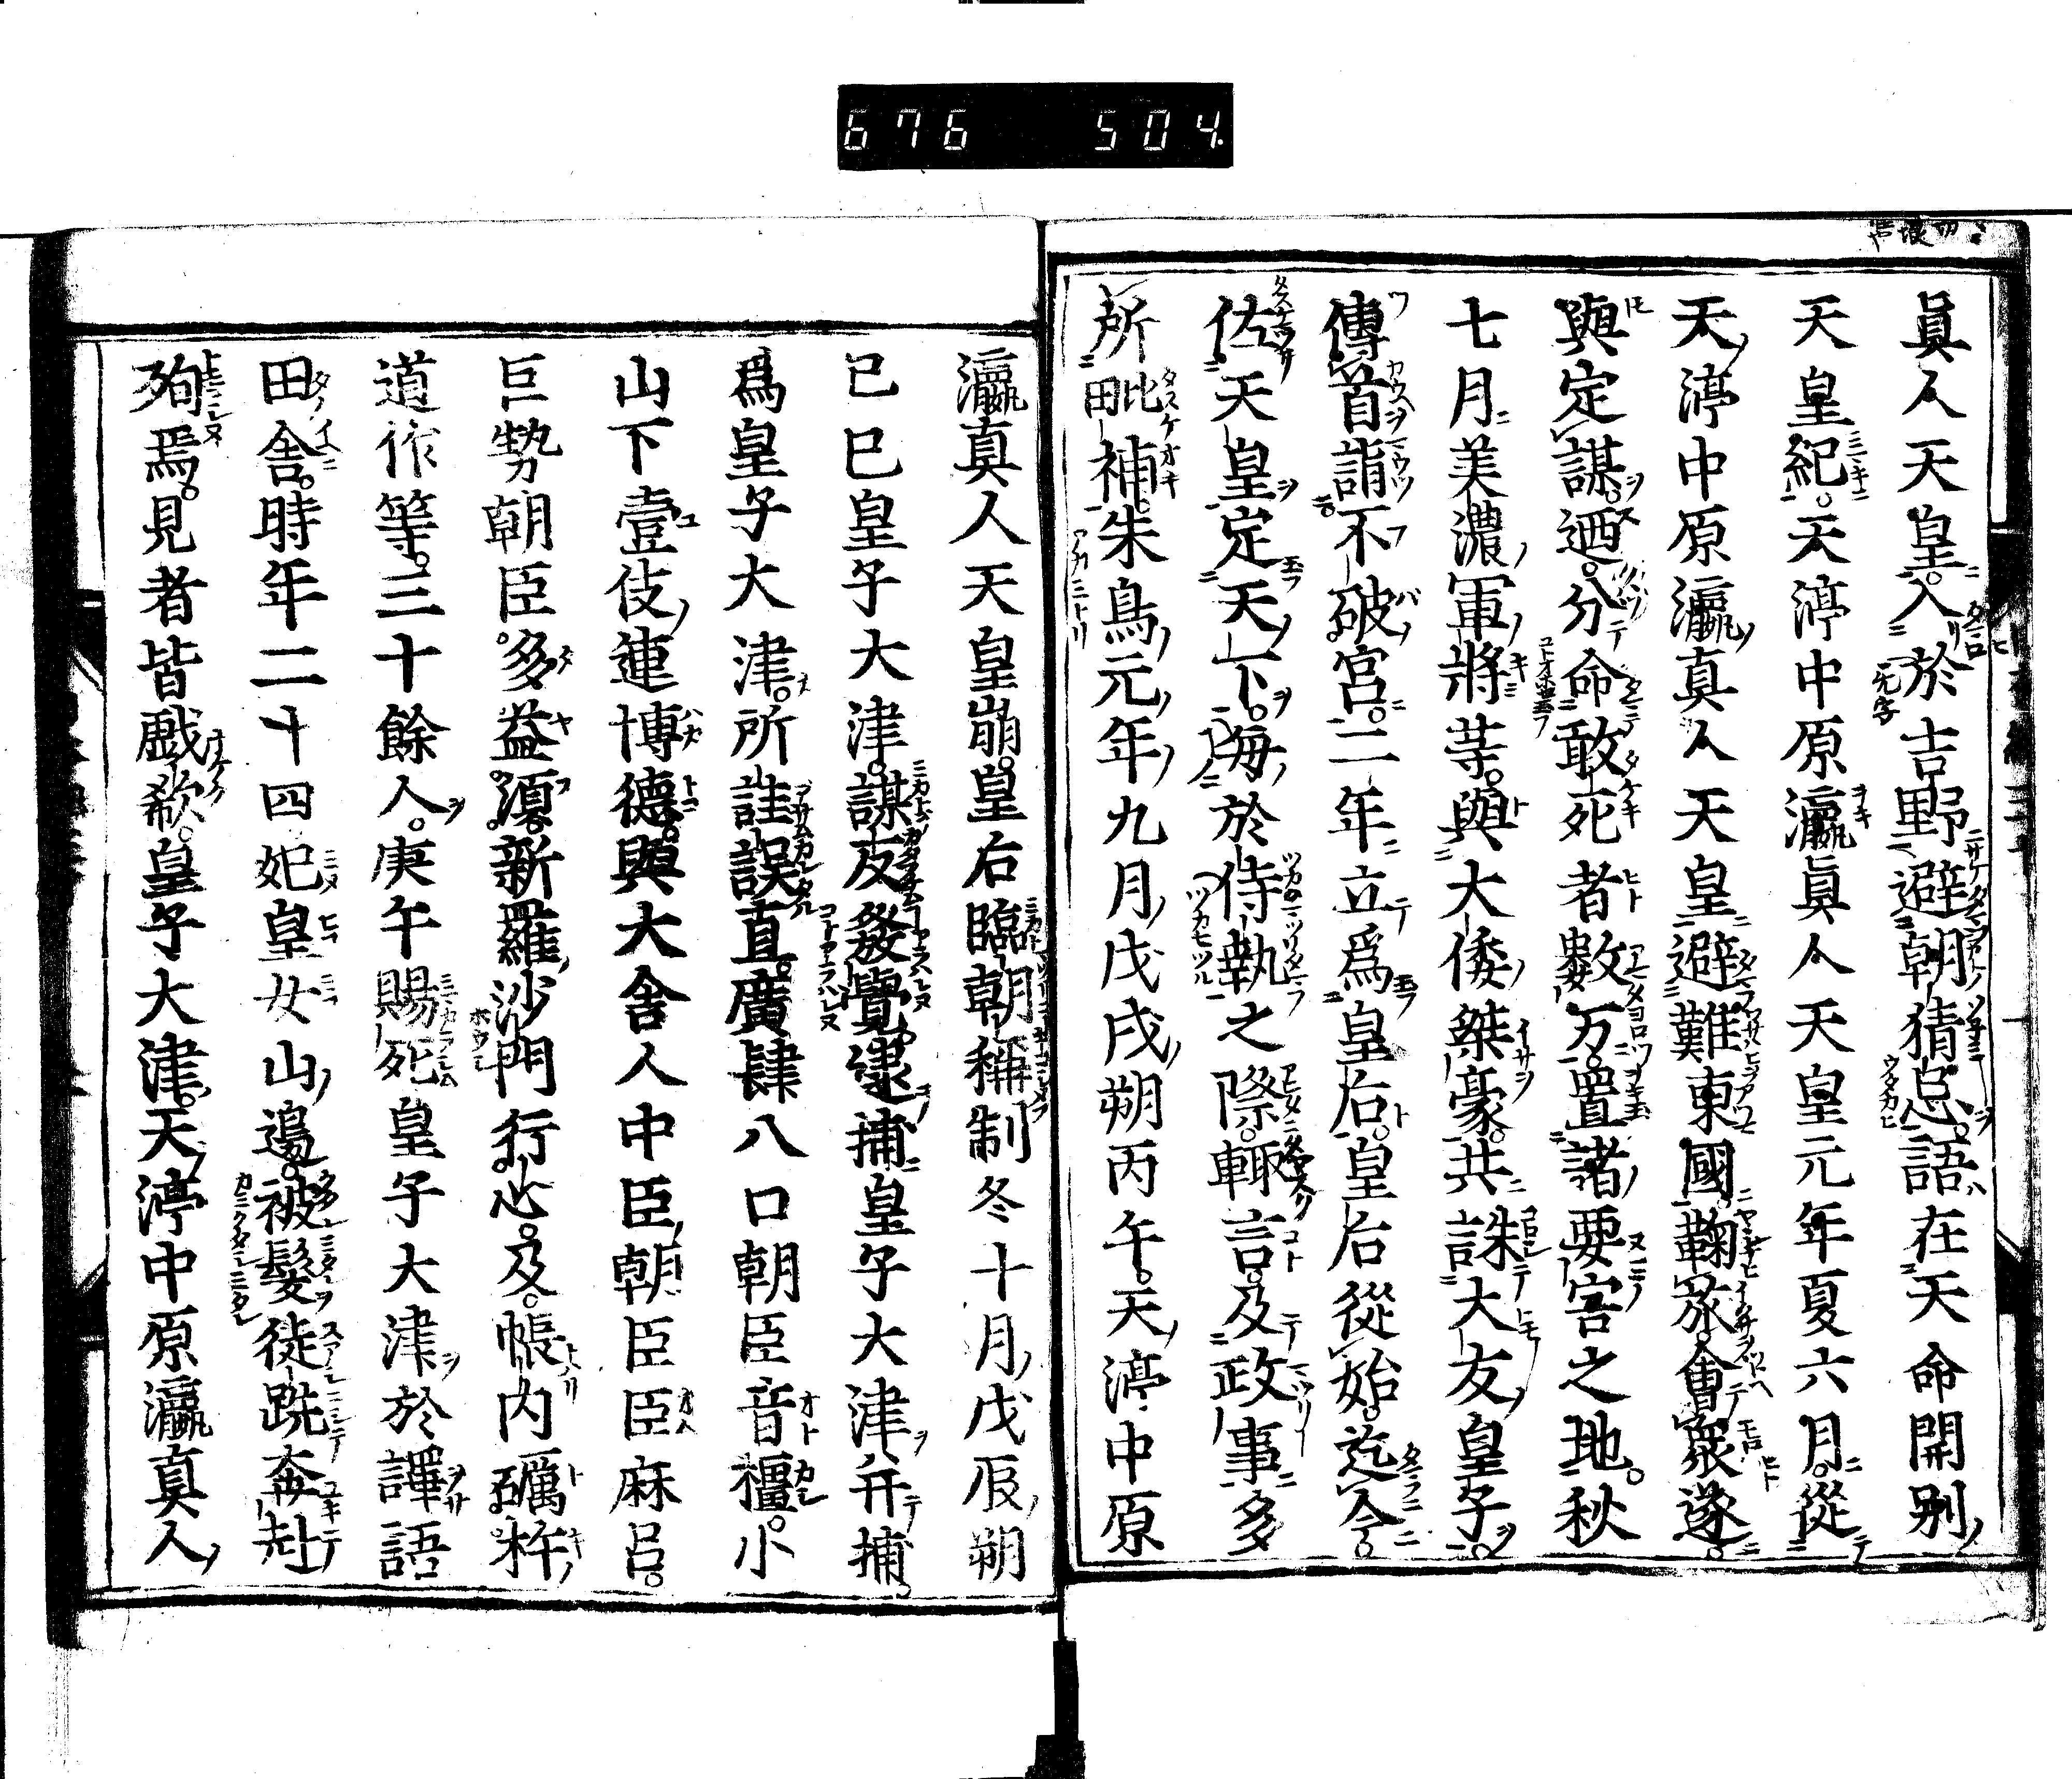 676 504.
眞人天皇入於吉野避朝猜忌語在天命開別
天皇紀天渟中原瀛眞人天皇元年夏六月從
天渟中原瀛真人天皇避難東國鞠旅會衆遂
與定謀迺分命敢死者數万置諸要害之地秋
七月美濃軍將等與大倭桀豪共誅大友皇子
傳首詣不破宮二年立爲皇后皇后從始迄今
佐天皇定天下毎於侍執之際輙言及政事多
所毗補朱鳥元年九月戊戌朔丙午天渟中原
瀛真人天皇崩皇后臨朝稱制冬十月戊辰朔
己巳皇子大津謀反發覺逮捕皇子大津幷捕
爲皇子大津所詿誤直廣肆八口朝臣音橿小
山下壹伎連博德與大舍人中臣朝臣臣麻呂
巨勢朝臣多益須新羅沙門行心及帳内礪杵
道作等三十餘人庚午賜死皇子大津於譯語
田舍時年二十四妃皇女山邊被髮徒跣奔赴
殉焉見者皆戯欷皇子大津天渟中原瀛真人